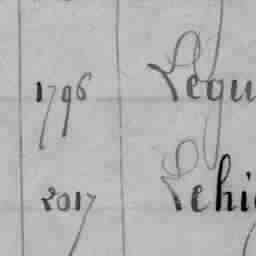 1796 Legu
2017 Lehi